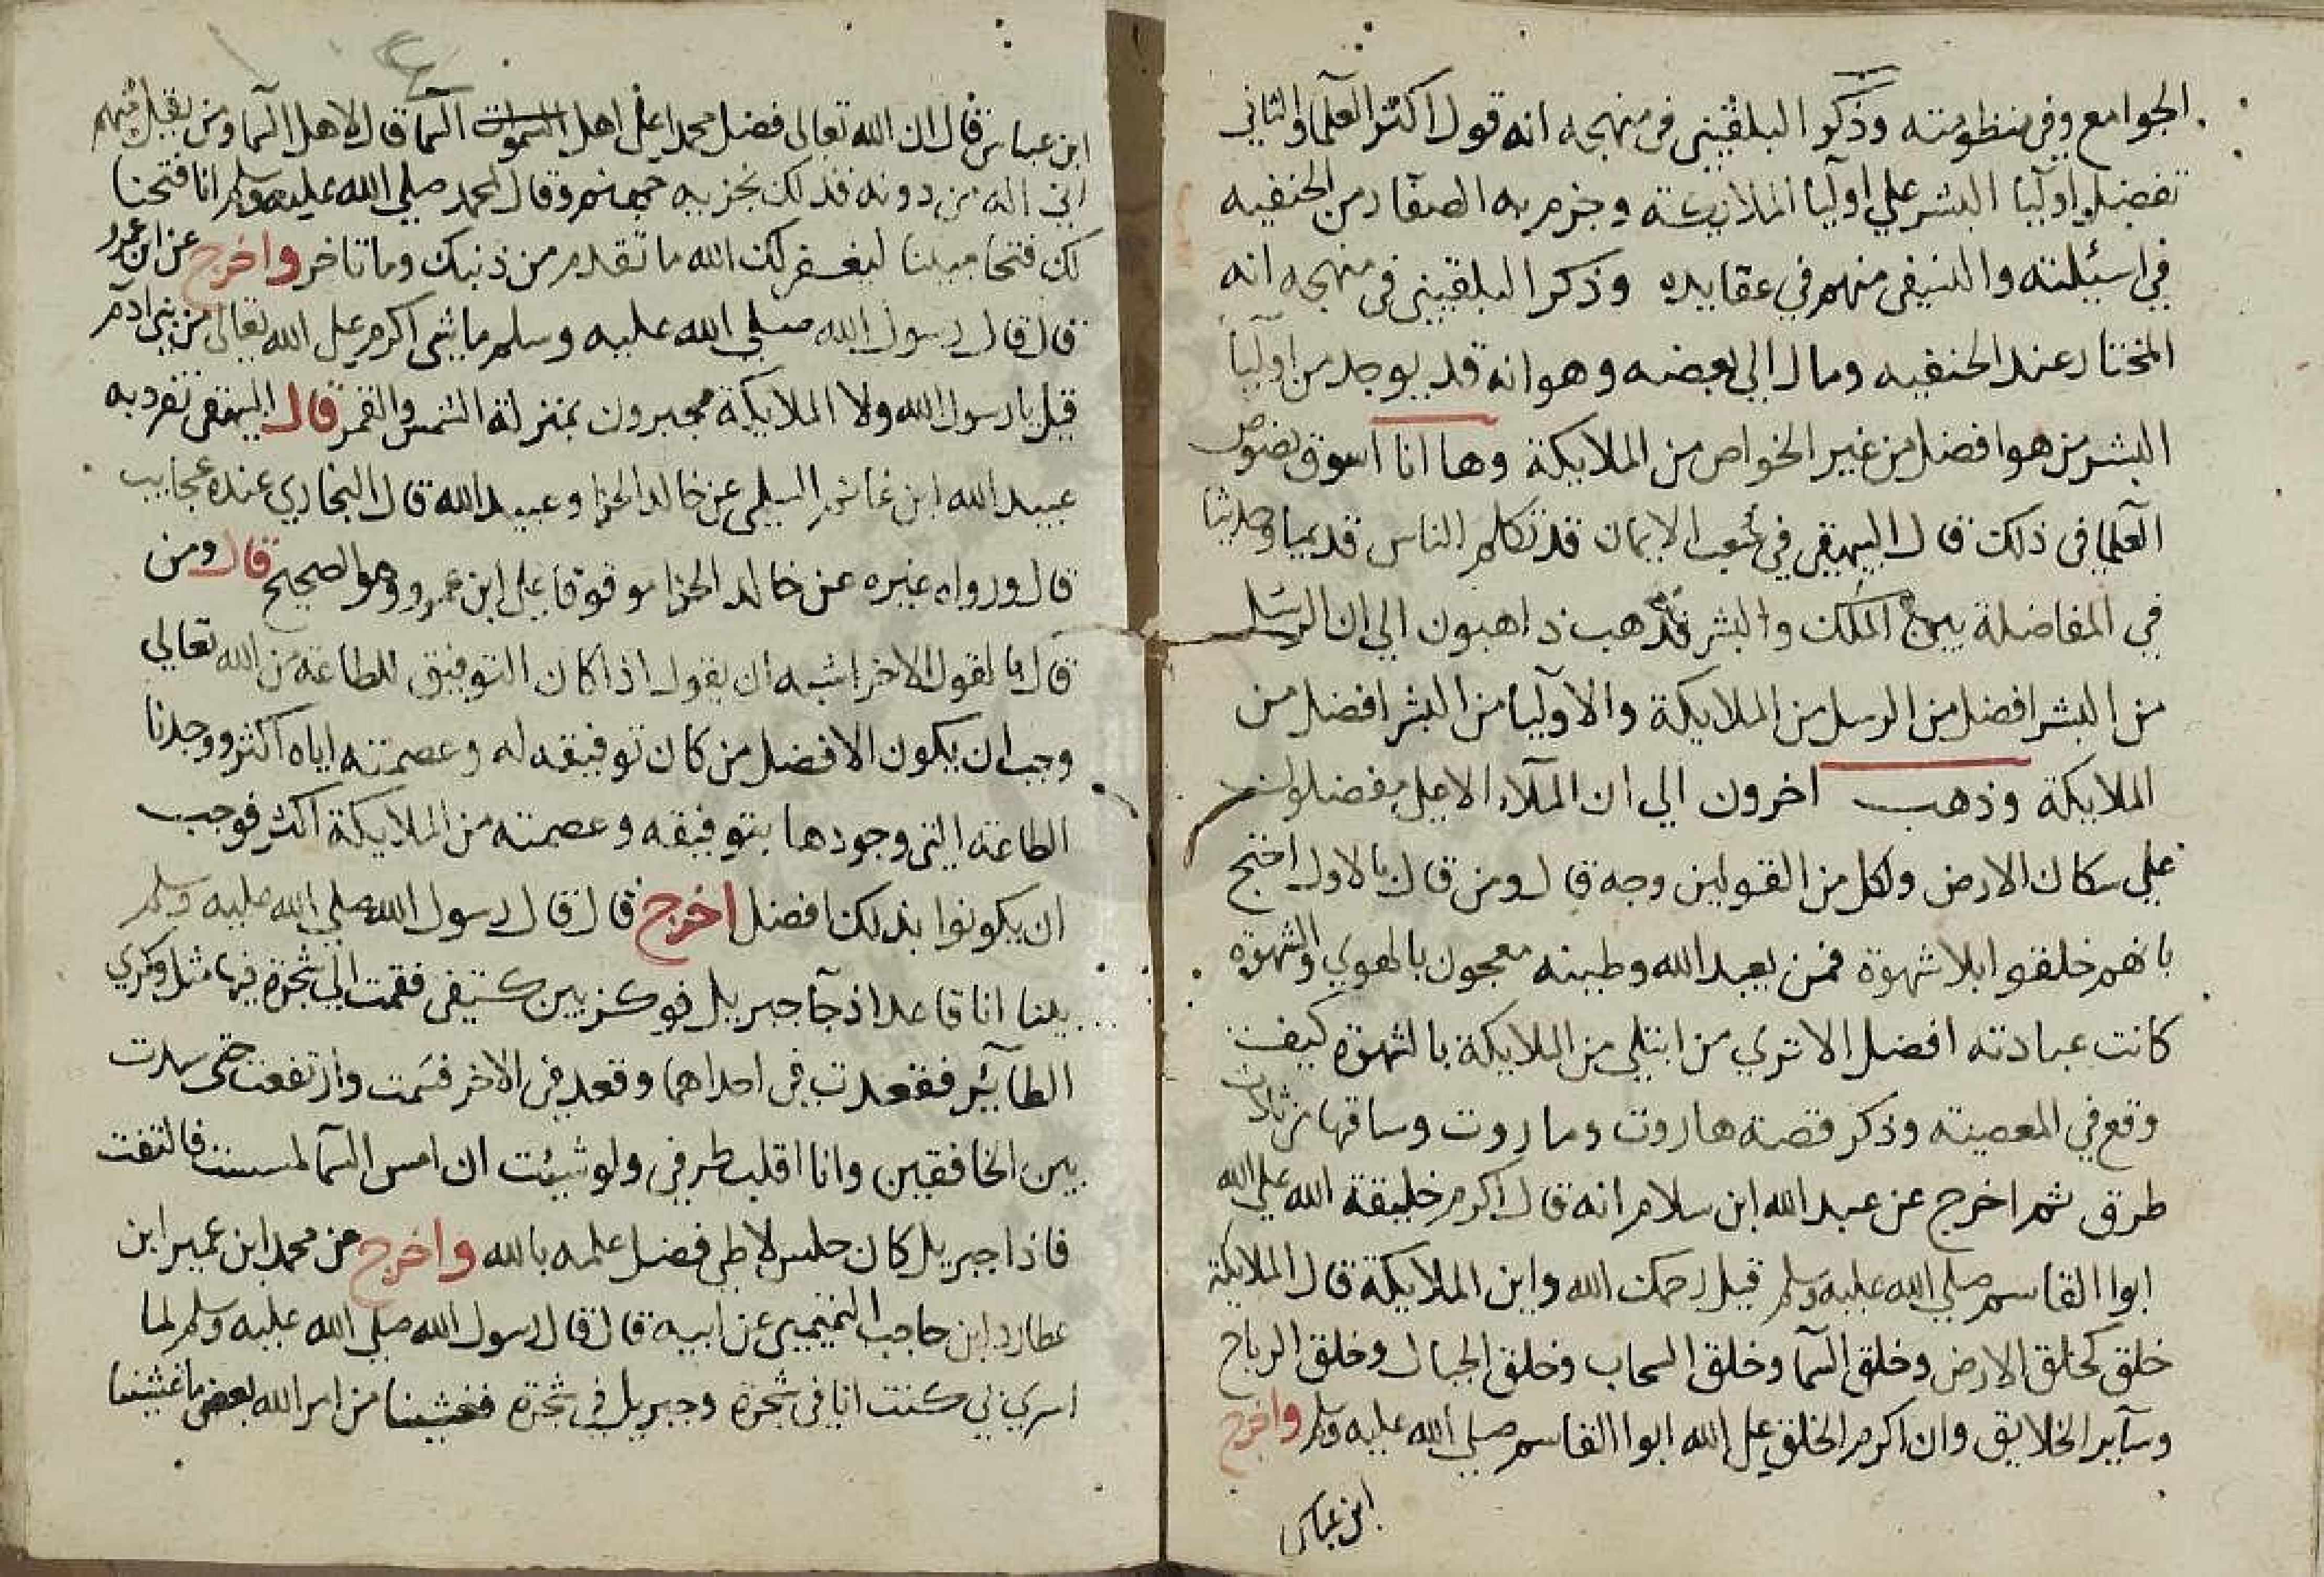 الجوامع وفي منظومته وذكر البلقيني في منهجه انه قول اكثر العلما والثاني
تفضيل اوليا البشر على اوليا الملايكة وجزم به الصفار من الحنفيه
في اسيلته والنسفي منهم في عقايده وذكر البلقيني في منهجه انه
المختار عند الحنفيه ومال الى بعضه وهو انه قد يوجد من اوليا
البشر من هو افضل من غير الخواص من الملايكة وها انا اسوق نصوص
العلما في ذلك قال البيهقي في شعب الايمان قد تكلم الناس قديما وحديثا
في المفاضلة بين الملك والبشر فذهب ذاهبون الي ان الرسل
من البشر افضل من الرسل من الملايكة والاوليا من البشر افضل من
الملايكة وذهب اخرون الي ان الملاء الاعلى مفضلون
على سكان الارض ولكل من القولين وجه قال ومن قال بالاول احتج
بانهم خلقوا بلا شهوة فمن يعبد الله وطينه معجون بالهوي والشهوة
كانت عبادته افضل الا تري من ابتلي من الملايكة بالشهوة كيف
وقع في المعصيته وذكر قصة هاروت وماروت وساقها من ثلاث
طرق ثم اخرج عن عبد الله ابن سلام انه قال اكرم خليقة الله على الله
ابوا القاسم صلي الله عليه وسلم قيل رحمك الله واين الملايكة قال الملايكة
خلق كخلق الارض وخلق السما وخلق السحاب وخلق الجبال وخلق الرياح
وساير الخلايق وان اكرم الخلق على الله ابوا القاسم صلى الله عليه وسلم واخرج
ابن عباس
ابن عباس قال ان الله تعالى فضل محمدا على اهل السموات السما قال لاهل السما ومن يقبل منهم
اني اله من دونه فذلك نجزيه جهنم وقال لمحمد صلي الله عليه وسلم انا فتحنا
لك فتحا مبينا ليغفر لك الله ما تقدم من ذنبك وما تاخر واخرج عن ابن عمرو
قال قال رسول الله صلي الله عليه وسلم ما شي اكرم على الله تعالى من بني ادم
قيل يا رسول الله ولا الملايكة مجبرون بمنزلة الشمس والقمر قال البيهقي تفرد به
عبيد الله ابن السلمي عن خالد الحذا وعبيد الله قال البخاري عنده عجايب
قال ورواه غيره عن خالد الحذا موقوفا على ابن عمرو وهو الصحيح قال ومن
قال بالقول الاخر اشبه ان يقول اذا كان التوفيق للطاعة من الله تعالي
وجب ان يكون الافضل من كان توفيقه له وعصمته اياه اكثر ووجدنا
الطاعة التي وجودها بتوفيقه وعصمته من الملايكة اكثر فوجب
ان يكونوا بذلك افضل اخرج قال قال رسول الله صلي الله عليه وسلم
بينا انا قاعد اذ جا جبريل فوكز بين كتيفي فقمت الي شجرة فيها مثل وكري
الطاير فقعدت في احداهما وقعد في الاخر فسمت وارتفعت حتى سدت
بين الخافقين وانا اقلب طرفي ولو شيئت ان امس السما لمسست فالتفت
فاذا جبريل كان حلس لاطي فضل علمه بالله واخرج عن محمد ابن عمير ابن
عطارد ابن حاجب التميمي عن ابيه قال قال رسول الله صلي الله عليه وسلم لما
اسري بي كنت انا في شجرة وجبريل في شجرة فغشينا من امر الله بعض ما غشينا